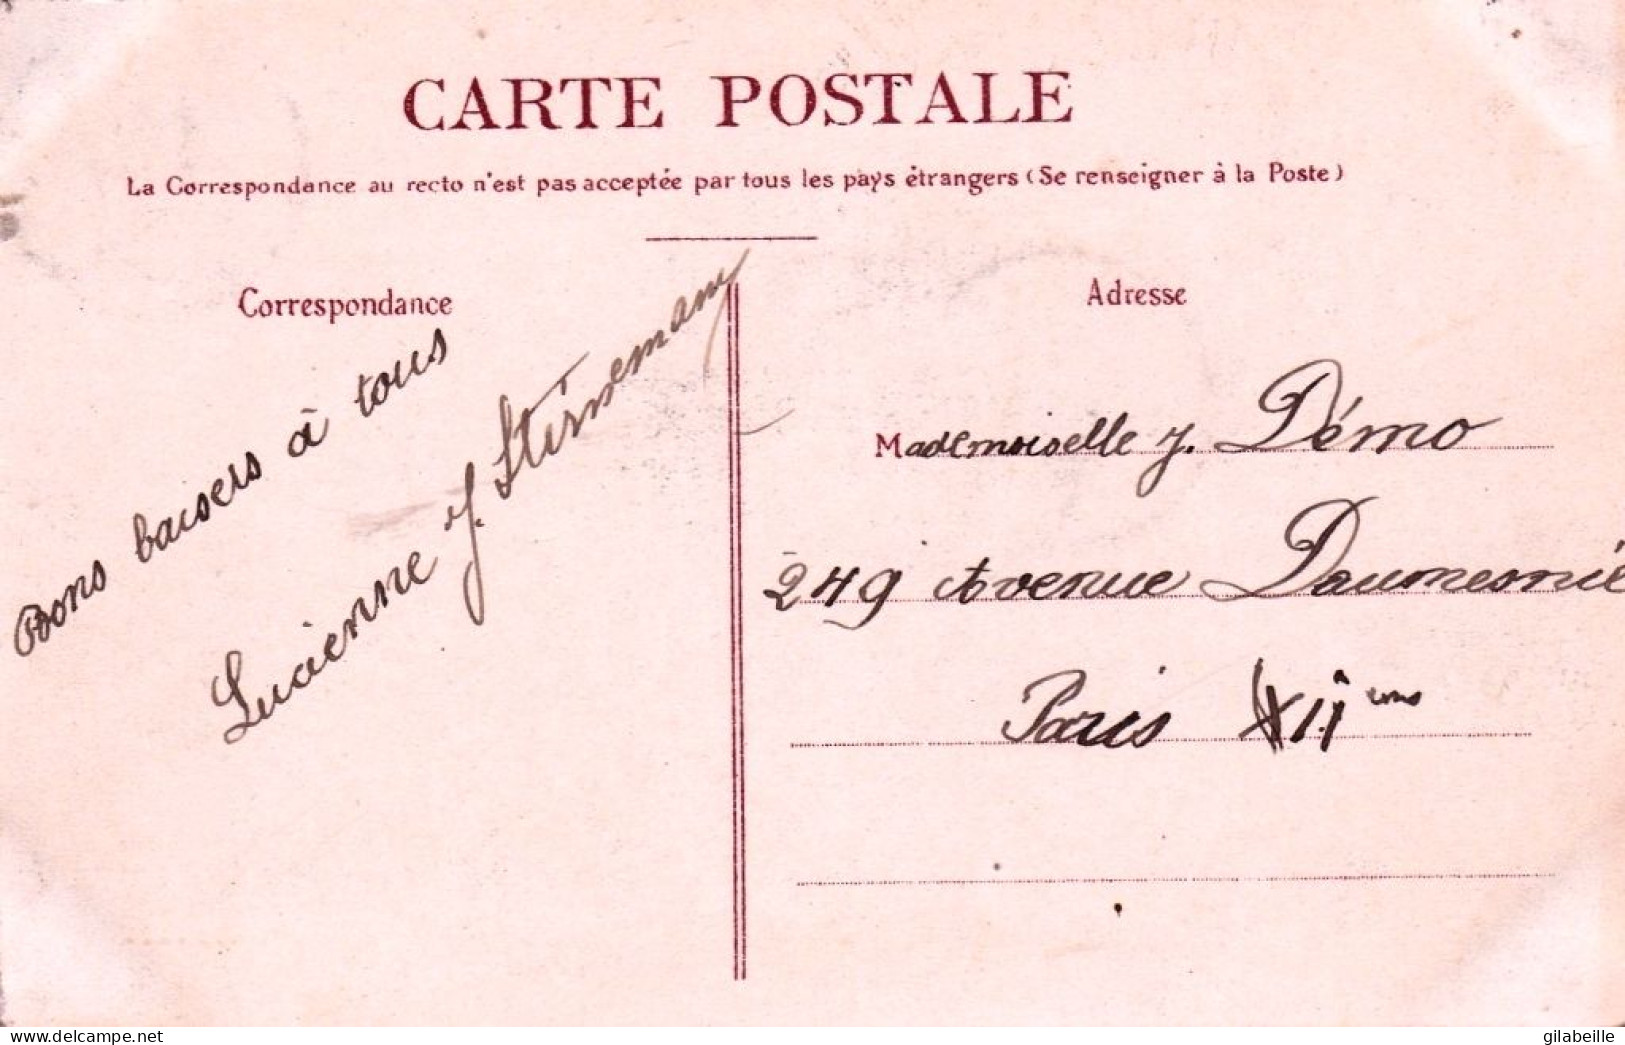 CARTE POSTALE
La Correspondance au recto n'est pas acceptée par tous les pays étrangers (Se renseigner à la Poste)
Correspondance
Bons baisers à tous
Lucienne J.
Adresse
Mademoiselle J. Démo
249 Avenue Daumesnil
Paris XII ème
www.delcampe.net
gilabeille